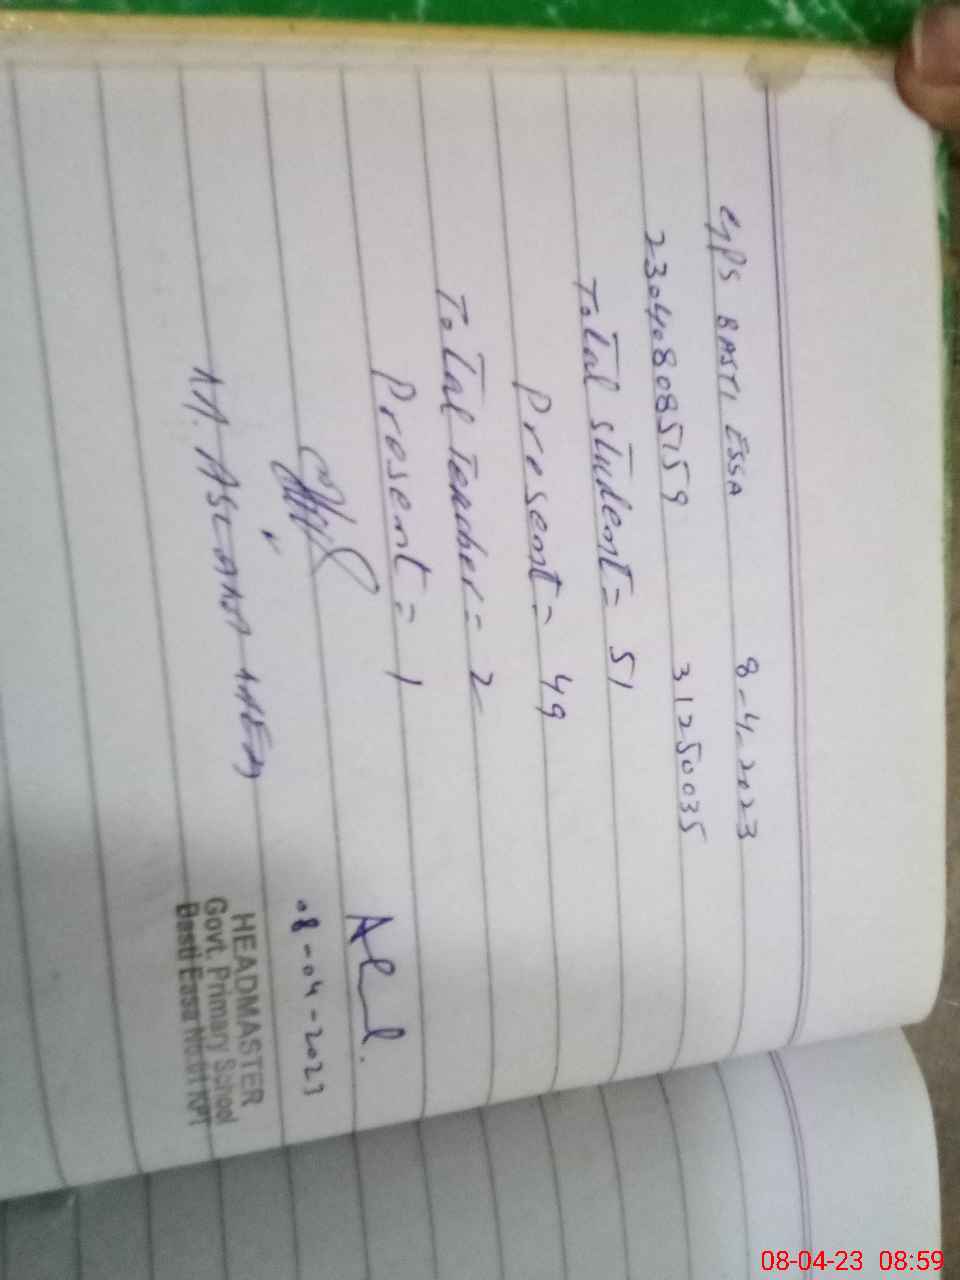 GPS BASTI ESSA 8-4-2023
230408085159 31250035
Total student = 51
Present = 49
Total Teacher = 2
Present = 1
08-04-2023
HEADMASTER
Govt. Primary School
Basti Easa No.01 KPT
08-04-23 08:59